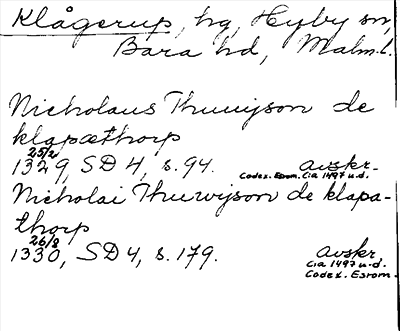 Klågerup, hg, Hyby sn,
Bara hd, Malm.l.
Nicholaus Thuuijson de
klapæthorp
25/2
1329, SD 4, s. 94. avskr.
Codex. Esrom. Cia 1497 u.d.
Nicholai Thuwijson de klapa-
thorp
26/8
1330, SD 4, s. 179. avskr
Cia 1497 u.d.
Codex. Esrom.